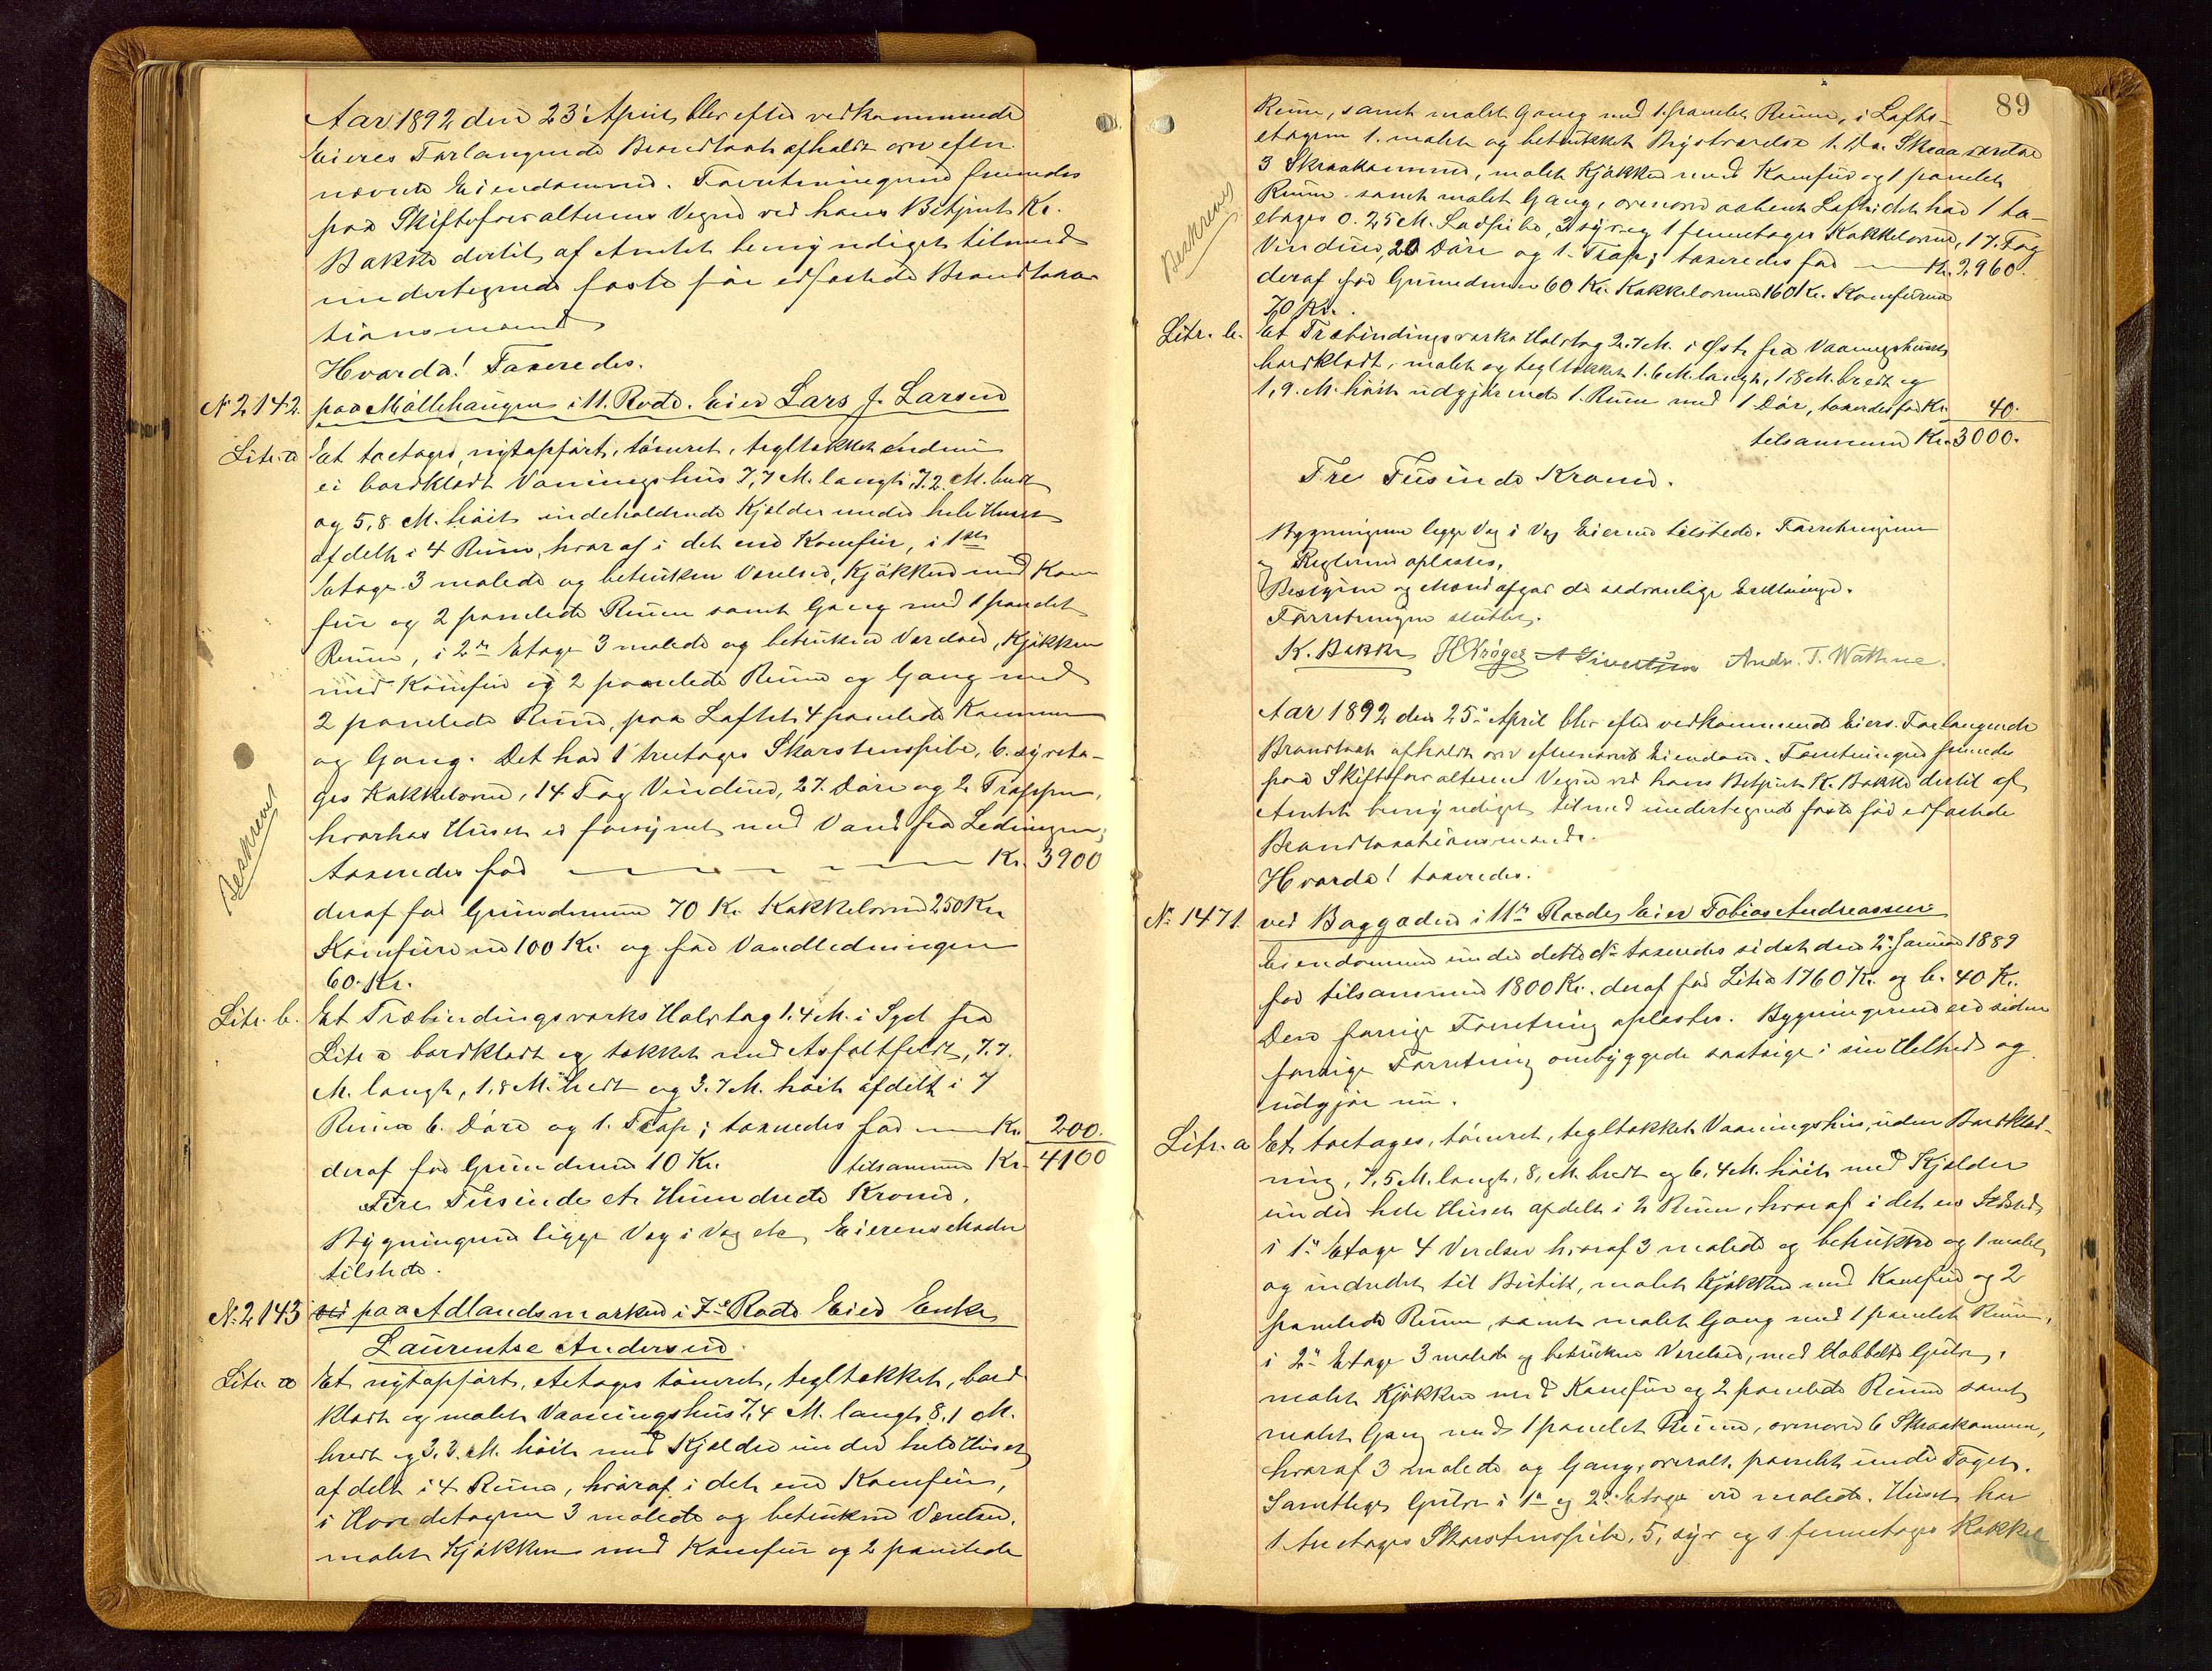 Aar 1892 den 23' April blev efter vedkommende
Eieres Forlangende Brandtaxt afholdt over efter
nævnte Eiendomme. Forretningerne fremmedes
paa Skifteforvalterens Vegne ved hans Betjent K.
Bakke dertil af Amtet bemyndiget tilmed
undertegnede faste før edfæstede Brandtaxa
tionsmænd
Hvorda! Taxeredes.
No 2142. paa Møllehaugen i 11. Rode. Eier Lars J. Larsen
Litr. a Et toetages, nyt opført, tømret, tegltækket endnu
ei bordklædt Vaaningshus 7,7 M. langt, 7.2. M. bredt
og 5,8 M. høit indeholdende Kjelder under hele Huset
afdelt i 4 Rum, hvoraf i det ene Komfur, i 1ste
Etage 3 malede og betrukne Værelser, Kjøkken med Kom
fur og 2 panelede Rum samt Gang med 1 panelet
Rum, i 2den Etage 3 malede og betrukne Værelser, Kjøkken
med Komfur og 2 panelede Rum og Gang med
2 panelede Rum, paa Loftet 4 panelede Kammer
og Gang. Det har 1 treetages Skorstenspibe, 6. syveta-
ges Kakkelovne, 14 Fag Vinduer, 27. Døre og 2 Trapper,
hvorhos Huset er forsynet med Vand fra Ledningen;
Beskreven
taxeredes for Kr. 3900
deraf for Grundmuren 70 Kr. Kakkelovne 250 Kr.
Komfurerne 100 Kr. og for Vandledningen
60. Kr.
Litr. b. Et Træbindingsværks Halvtag 1.4 M. i Syd fra
Litr a bordklædt og tækket med Asfaltfeldt, 7.7.
M. langt, 1,8 M. bredt og 3.7 M. høit afdelt i 7
Rum 6. Døre og 1. Trap; taxeredes for Kr. 200.
deraf for Grundmuren 10 Kr. tilsammen Kr. 4100
Fire Tusinde et Hundrede Kroner.
Bygningerne ligge Væg i Væg etc Eierens Moder
tilstede.
No. 2143 ved paa Adlandsmarken i 7de Rode Eier Enke
Laurentse Andersen.
Litr. a Et nytopført, etetages tømret, tegltækket, bord
klædt og malet Vaaningshus 7,4 M. langt 8,1 M.
bredt og 3.3. M. høit med Kjelder under hele Huset
afdelt i 4 Rum, hvoraf i det ene Komfur,
i Hovedetagen 3 malede og betrukne Værelser,
malet Kjøkken med Komfur og 2 panelede
89
Rum, samt malet Gang med 1. panelet Rum, i Lofts-
etagen 1. malet og betrukket Kvistværelse 1. Do. Skraaværelse
3 Skraakammer, malet Kjøkken med Komfur og 1 panelet
Rum samt malet Gang, ovenover aabent Loft; det har 1 to-
Beskreven
etages 0.25 M. Lodpibe, 3 syv og 1 femetages Kakkelovne, 17. Fag
Vinduer, 20 Døre og 1. Trap; taxeredes for Kr. 2960.
deraf for Grundmuren 60 Kr. Kakkelovnene 160 Kr. Komfurene
70 Kr.
Litr. b. Et Træbindingsværks Halvtag 2.7 M. i Øst fra Vaaningshuset
bordklædt, malet og tegltækket 1.6 M. langt, 1,8 M. bredt og
1,9. M. høit udgjørende 1. Rum med 1 Dør, taxeredes for Kr. 40.
tilsammen Kr. 3000.
Tre Tusinde Kroner.
Bygningerne ligge Væg i Væg Eieren tilstede. Forretningerne
og Reglerne oplæstes.
Bestyrer og Mænd afgav de sedvanlige Erklæringer.
Forretningen sluttet.
K. Bakke H Krøger A Sivertsen Andr. T. Wathne.
Aar 1892 den 25' April blev efter vedkommende Eiers Forlangende
Brandtaxt afholdt over efternævnte Eiendom. Forretningen fremmedes
paa Skifteforvalterens Vegne ved hans Betjent K. Bakke dertil af
Amtet bemyndiget tilmed undertegnede faste før edfæstede
Brandtaxationsmænd.
Hvorda! taxeredes.
No. 1471. ved Baggaden i 11te Rode, Eier Tobias Andreassen
Eiendommen under dette No taxeredes sidst den 2. Januar 1889
for tilsammen 1800 Kr. deraf for Litr a 1760 Kr. og b. 40 Kr.
Den forrige Forretning oplæstes. Bygningerne ere siden
forrige Forretning ombyggede saatsige i sin Helhed og
udgjør nu.
Litr. a Et toetages, tømret, tegltækket Vaaningshus, uden Bordklæd-
ning, 7,5 M. langt, 8, M. bredt og 6,4 M. høit med Kjelder
under hele Huset afdelt i 2 Rum, hvoraf i det ene
i 1ste Etage 4 Værelser hvoraf 3 malede og betrukne og 1 malet
og indredet til Butik, malet Kjøkken med Komfur og 2
panelede Rum, samt malet Gang med 1 panelet Rum,
i 2den Etage 3 malede og betrukne Værelser, med dobbelte Gulve,
malet Kjøkken med Komfur og 2 panelede Rum samt
malet Gang med 1 panelet Rum, ovenover 6 Skraakammer,
hvoraf 3 malede og Gang, overalt panelet under Taget.
Samtlige Gulve i 1ste og 2den Etage ere malede. Huset har
1 treetages Skorstenspibe, 5, syv og 1 femetages Kakkel